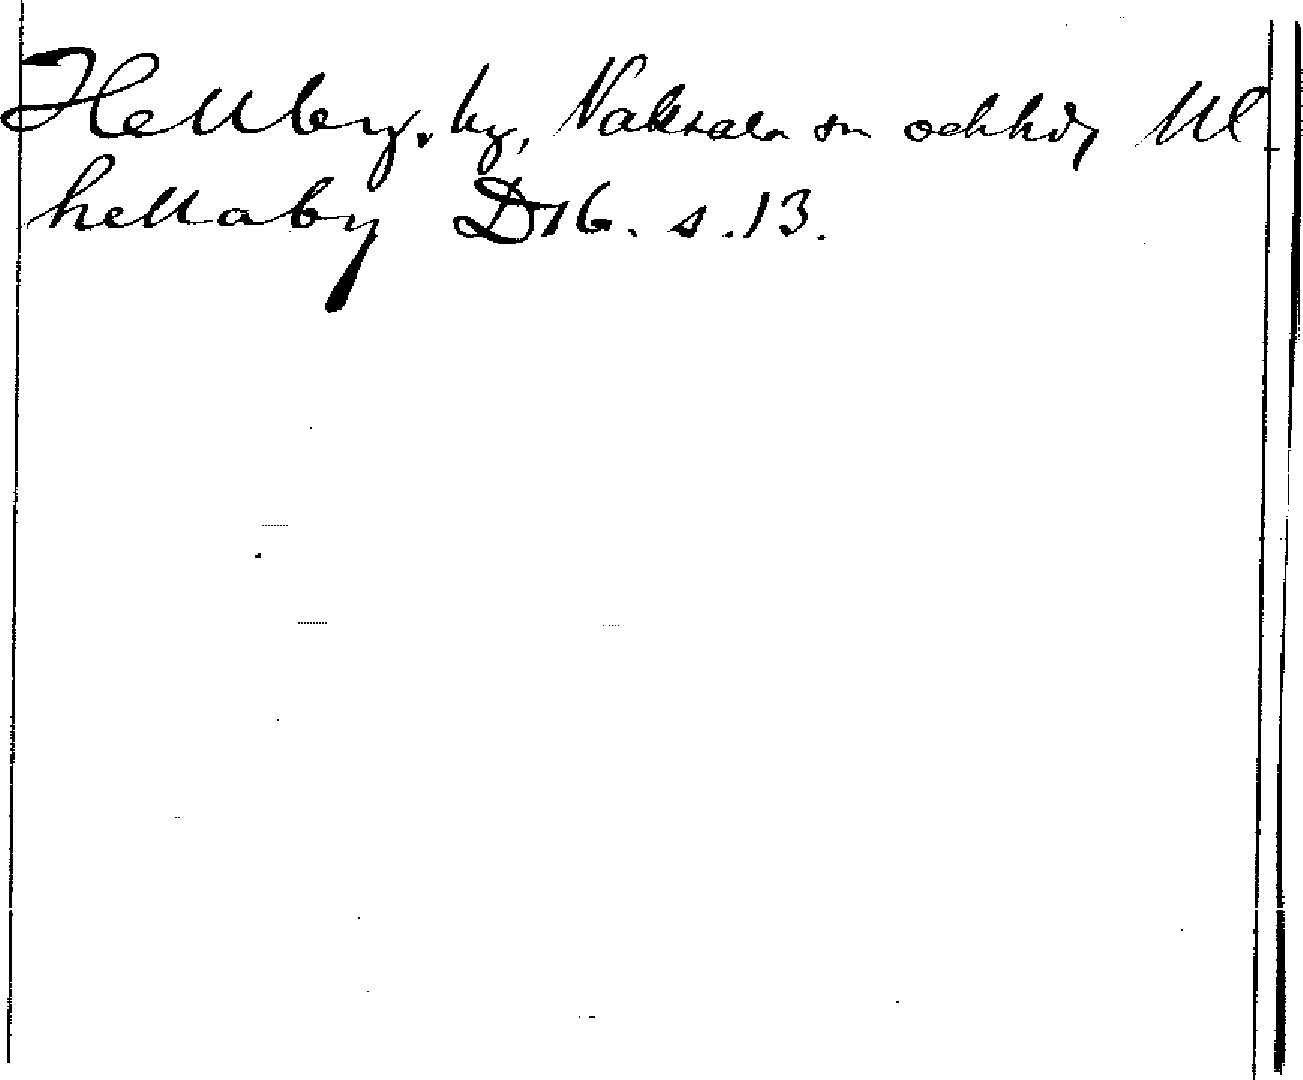 Hellby. by, Vaksala sn och hd, Ul
hellaby D16. s. 13.